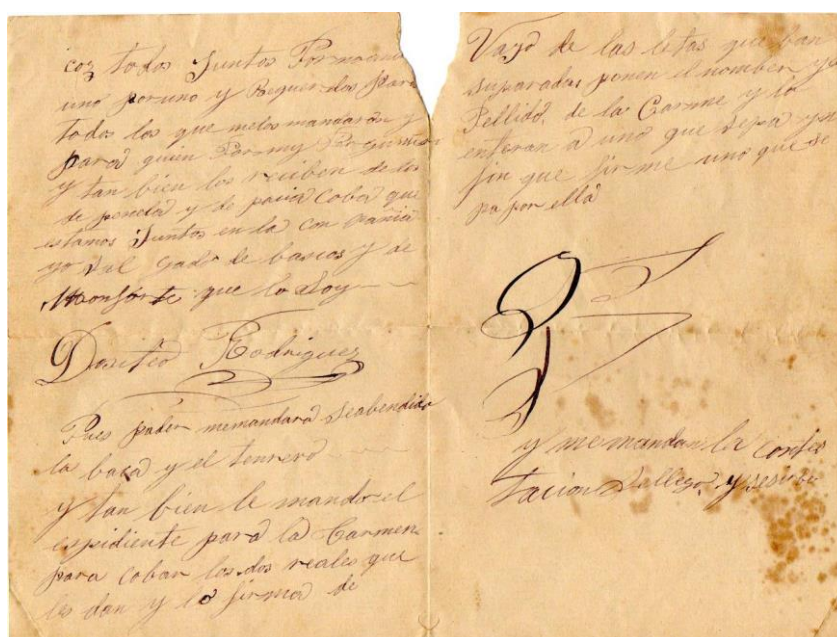 coz todos Juntos Por
uno por uno y Para
todos los que me los mandarán y
para quien Por my
y tan bien los reciben de los
de y de coba que
estamos Juntos en la con pañia
yo de y de
Monforte que lo Soy
Dositeo Rodriguez
Pues pader me mandará Seabendido
la baca y el tenrero
y tan bien le mando el
espidiente para la Carmen
para cobar los dos reales que
les dan y la firma de
Vayo de las letas que ban
suparadas ponen el nomber y a
Pellido, de la Carme y lo
enteran a uno que sepa y
fin que firme uno que se
pa por ella
y me mandan la contes
tacion